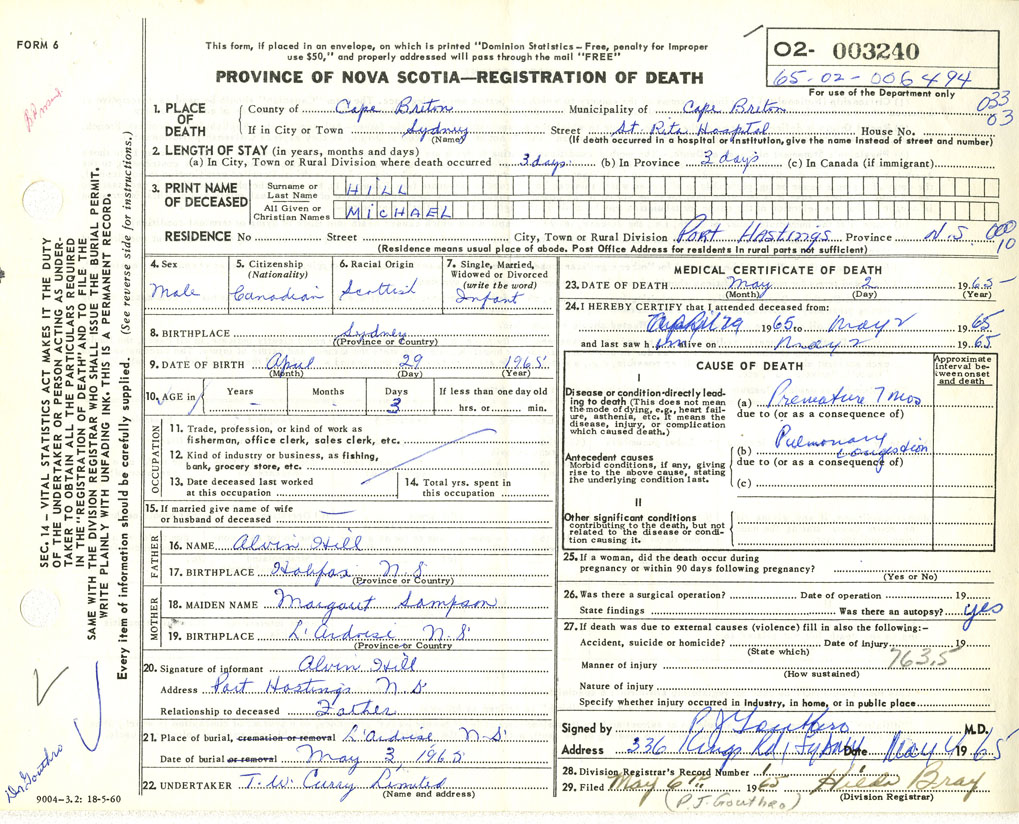 FORM 6
This form, if placed in an envelope, on which is printed "Dominion Statistics – Free, penalty for improper
use $50," and properly addressed will pass through the mail "FREE"
PROVINCE OF NOVA SCOTIA—REGISTRATION OF DEATH
02- 003240
65-02-006494
For use of the Department only
033
03
1. PLACE OF DEATH
County of Cape Breton Municipality of Cape Breton
If in City or Town Sydney Street St Rita Hospital House No.
(Name) (If death occurred in a hospital or institution, give the name instead of street and number)
2. LENGTH OF STAY (in years, months and days)
(a) In City, Town or Rural Division where death occurred 3 days (b) In Province 3 days (c) In Canada (if immigrant)
3. PRINT NAME OF DECEASED
Surname or Last Name HILL
All Given or Christian Names MICHAEL
RESIDENCE No Street City, Town or Rural Division Port Hastings Province N.S
000
10
(Residence means usual place of abode. Post Office Address for residents in rural parts not sufficient)
4. Sex Male
5. Citizenship (Nationality) Canadian
6. Racial Origin Scottish
7. Single, Married, Widowed or Divorced (write the word) Infant
8. BIRTHPLACE Sydney
(Province or Country)
9. DATE OF BIRTH April 29 1965
(Month) (Day) (Year)
10. AGE in Years – Months – Days 3 If less than one day old hrs. or min.
OCCUPATION
11. Trade, profession, or kind of work as
fisherman, office clerk, sales clerk, etc.
12. Kind of industry or business, as fishing,
bank, grocery store, etc.
13. Date deceased last worked at this occupation
14. Total yrs. spent in this occupation
15. If married give name of wife
or husband of deceased —
FATHER
16. NAME Alvin Hill
17. BIRTHPLACE Halifax N.S
(Province or Country)
MOTHER
18. MAIDEN NAME Margaret Sampson
19. BIRTHPLACE L'Ardoise N.S
(Province or Country)
20. Signature of informant Alvin Hill
Address Port Hastings N.S
Relationship to deceased Father
21. Place of burial, cremation or removal L'Ardoise N.S
Date of burial or removal May 3, 1965
22. UNDERTAKER T.W. Curry Limited
(Name and address)
MEDICAL CERTIFICATE OF DEATH
23. DATE OF DEATH May 2 1965
(Month) (Day) (Year)
24. I HEREBY CERTIFY that I attended deceased from:
April 29 1965 to May 2 1965
and last saw him alive on May 2 1965
CAUSE OF DEATH
Approximate interval between onset and death
I
Disease or condition directly leading to death (This does not mean
the mode of dying, e.g., heart failure, asthenia, etc. It means the
disease, injury, or complication
which caused death.)
(a) Premature 7 mos
due to (or as a consequence of)
Antecedent causes
Morbid conditions, if any, giving
rise to the above cause, stating
the underlying condition last.
(b) Pulmonary Congestion
due to (or as a consequence of)
(c)
II
Other significant conditions
contributing to the death, but not
related to the disease or condition causing it.
25. If a woman, did the death occur during
pregnancy or within 90 days following pregnancy?
(Yes or No)
26. Was there a surgical operation? Date of operation 19
State findings Was there an autopsy? yes
27. If death was due to external causes (violence) fill in also the following:–
Accident, suicide or homicide? Date of injury 19
(State which) 763.5
Manner of injury
(How sustained)
Nature of injury
Specify whether injury occurred in industry, in home, or in public place
Signed by P J Gouthro M.D.
Address 336 Kings Rd, Sydney Date May 4 1965
28. Division Registrar's Record Number 1
29. Filed May 6th 1965 Hilda Bray
(P.J. Gouthro) (Division Registrar)
SEC. 14 – VITAL STATISTICS ACT MAKES IT THE DUTY
OF THE UNDERTAKER OR PERSON ACTING AS UNDER-
TAKER TO OBTAIN ALL THE PARTICULARS REQUIRED
IN THE "REGISTRATION OF DEATH" AND TO FILE THE
SAME WITH THE DIVISION REGISTRAR WHO SHALL ISSUE THE BURIAL PERMIT.
WRITE PLAINLY WITH UNFADING INK. THIS IS A PERMANENT RECORD.
Every item of information should be carefully supplied. (See reverse side for instructions.)
Dr. Gouthro
9004–3.2: 18-5-60